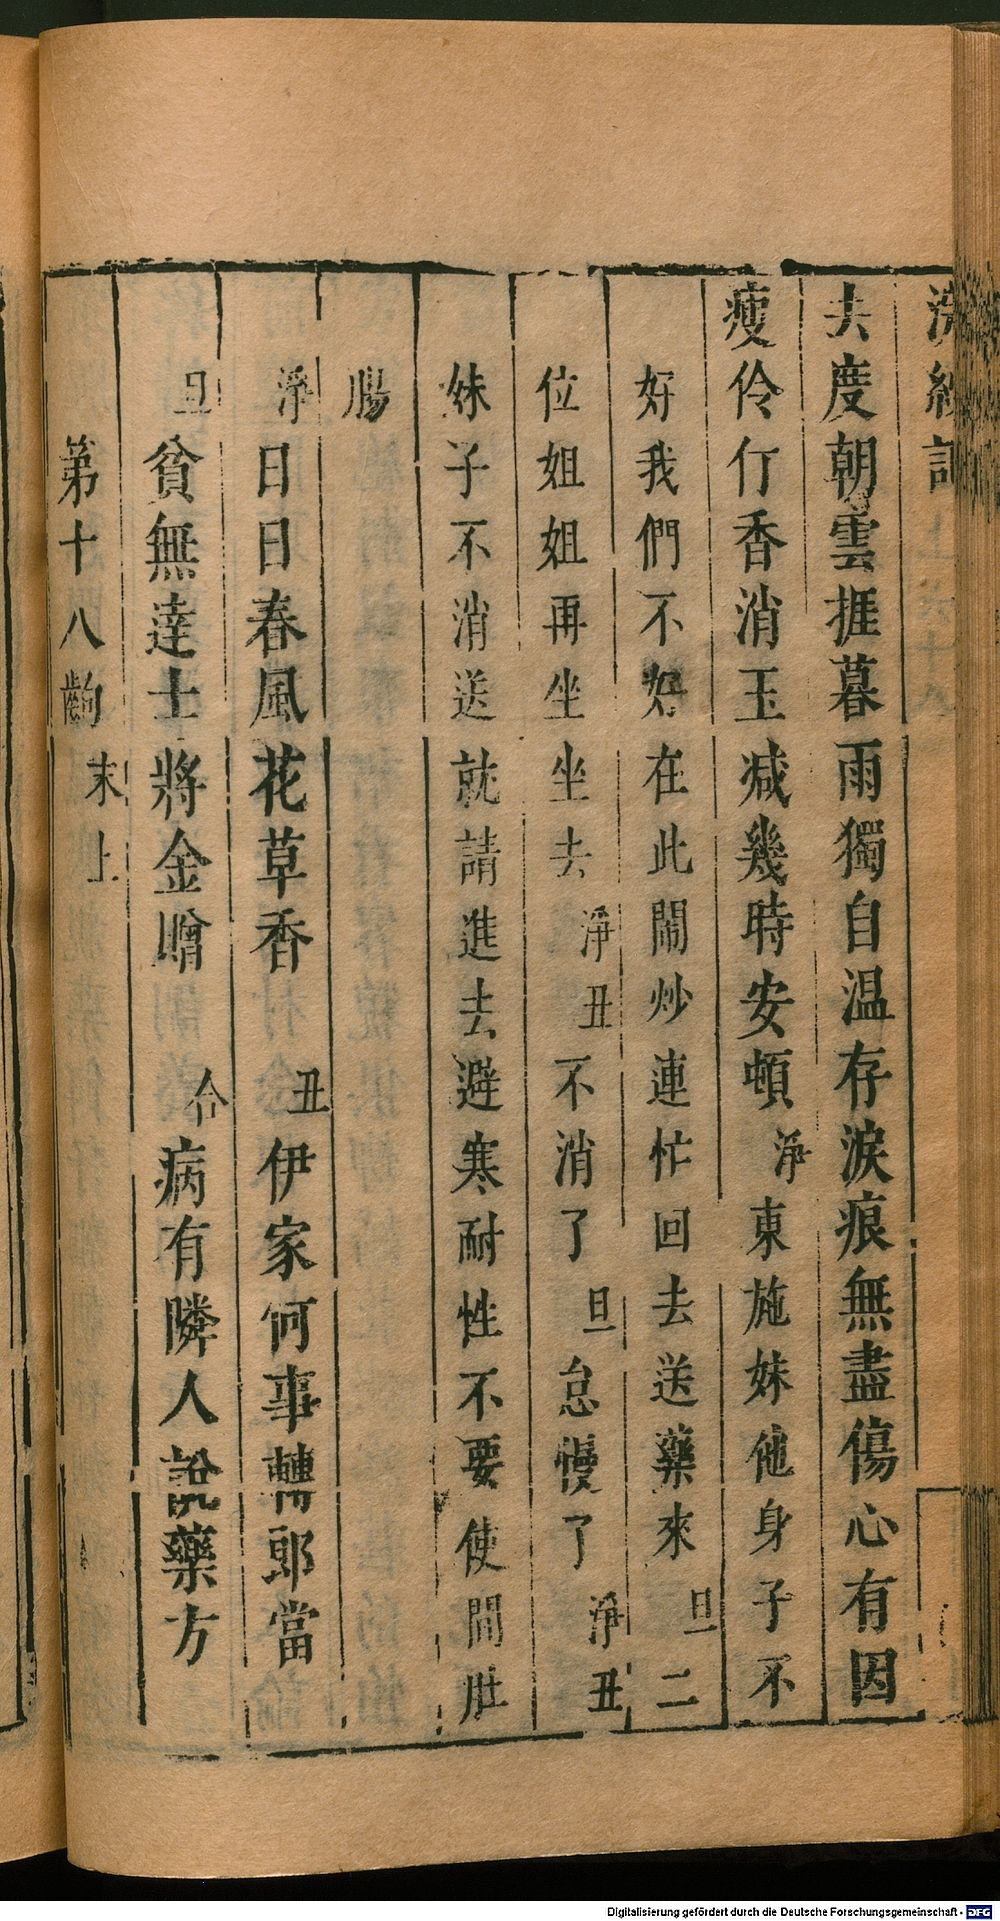 浣紗記
夫度朝雲捱暮雨獨自温存淚痕無盡傷心有因
瘦伶仃香消玉减幾時安頓淨東施妹他身子不
好我們不好在此鬧炒連忙回去送藥來旦二
位姐姐再坐坐去淨丑不消了旦怠慢了淨丑
妹子不消送就請進去避寒耐性不要使閒肚
腸
淨日日春風花草香丑伊家何事轉郎當
旦貧無達士將金贈合病有隣人說藥方
第十八齣末上
Digitalisierung gefördert durch die Deutsche Forschungsgemeinschaft - DFG